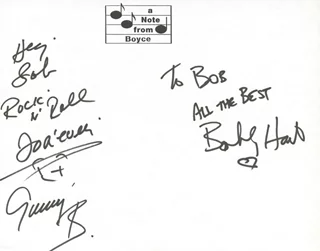 a
Note
from
Boyce
Hey,
Bob
Rock
N'
Roll
For'ever.
To Bob
All the Best
Bobby Hart